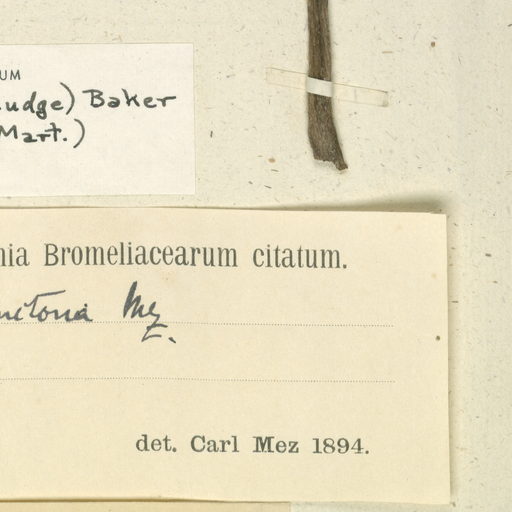 UM
udge) Baker
Mart.)
nia Bromeliacearum citatum.
Mez
det. Carl Mez 1894.